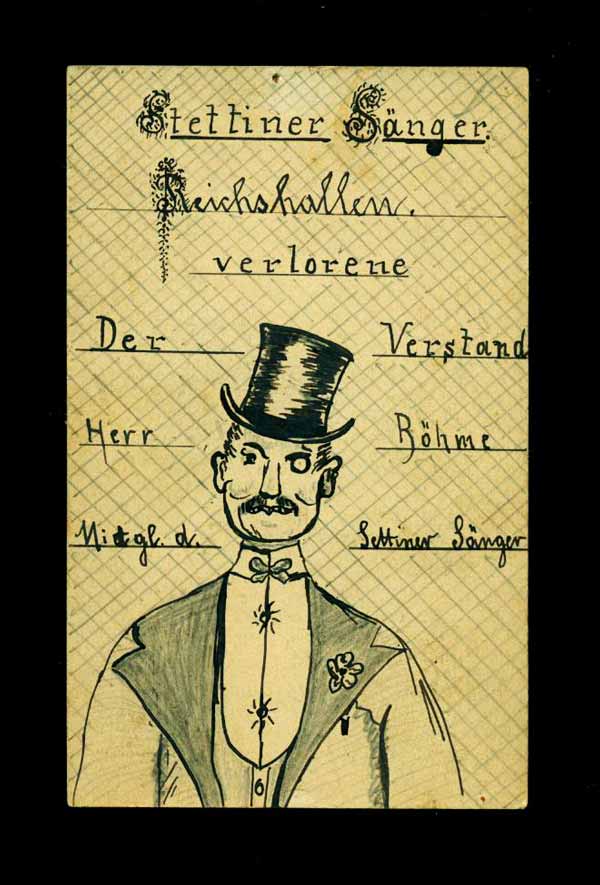 Stettiner Sänger.
Reichshallen.
verlorene
Der Verstand
Herr Böhme
Mitgl. d. Settiner Sänger